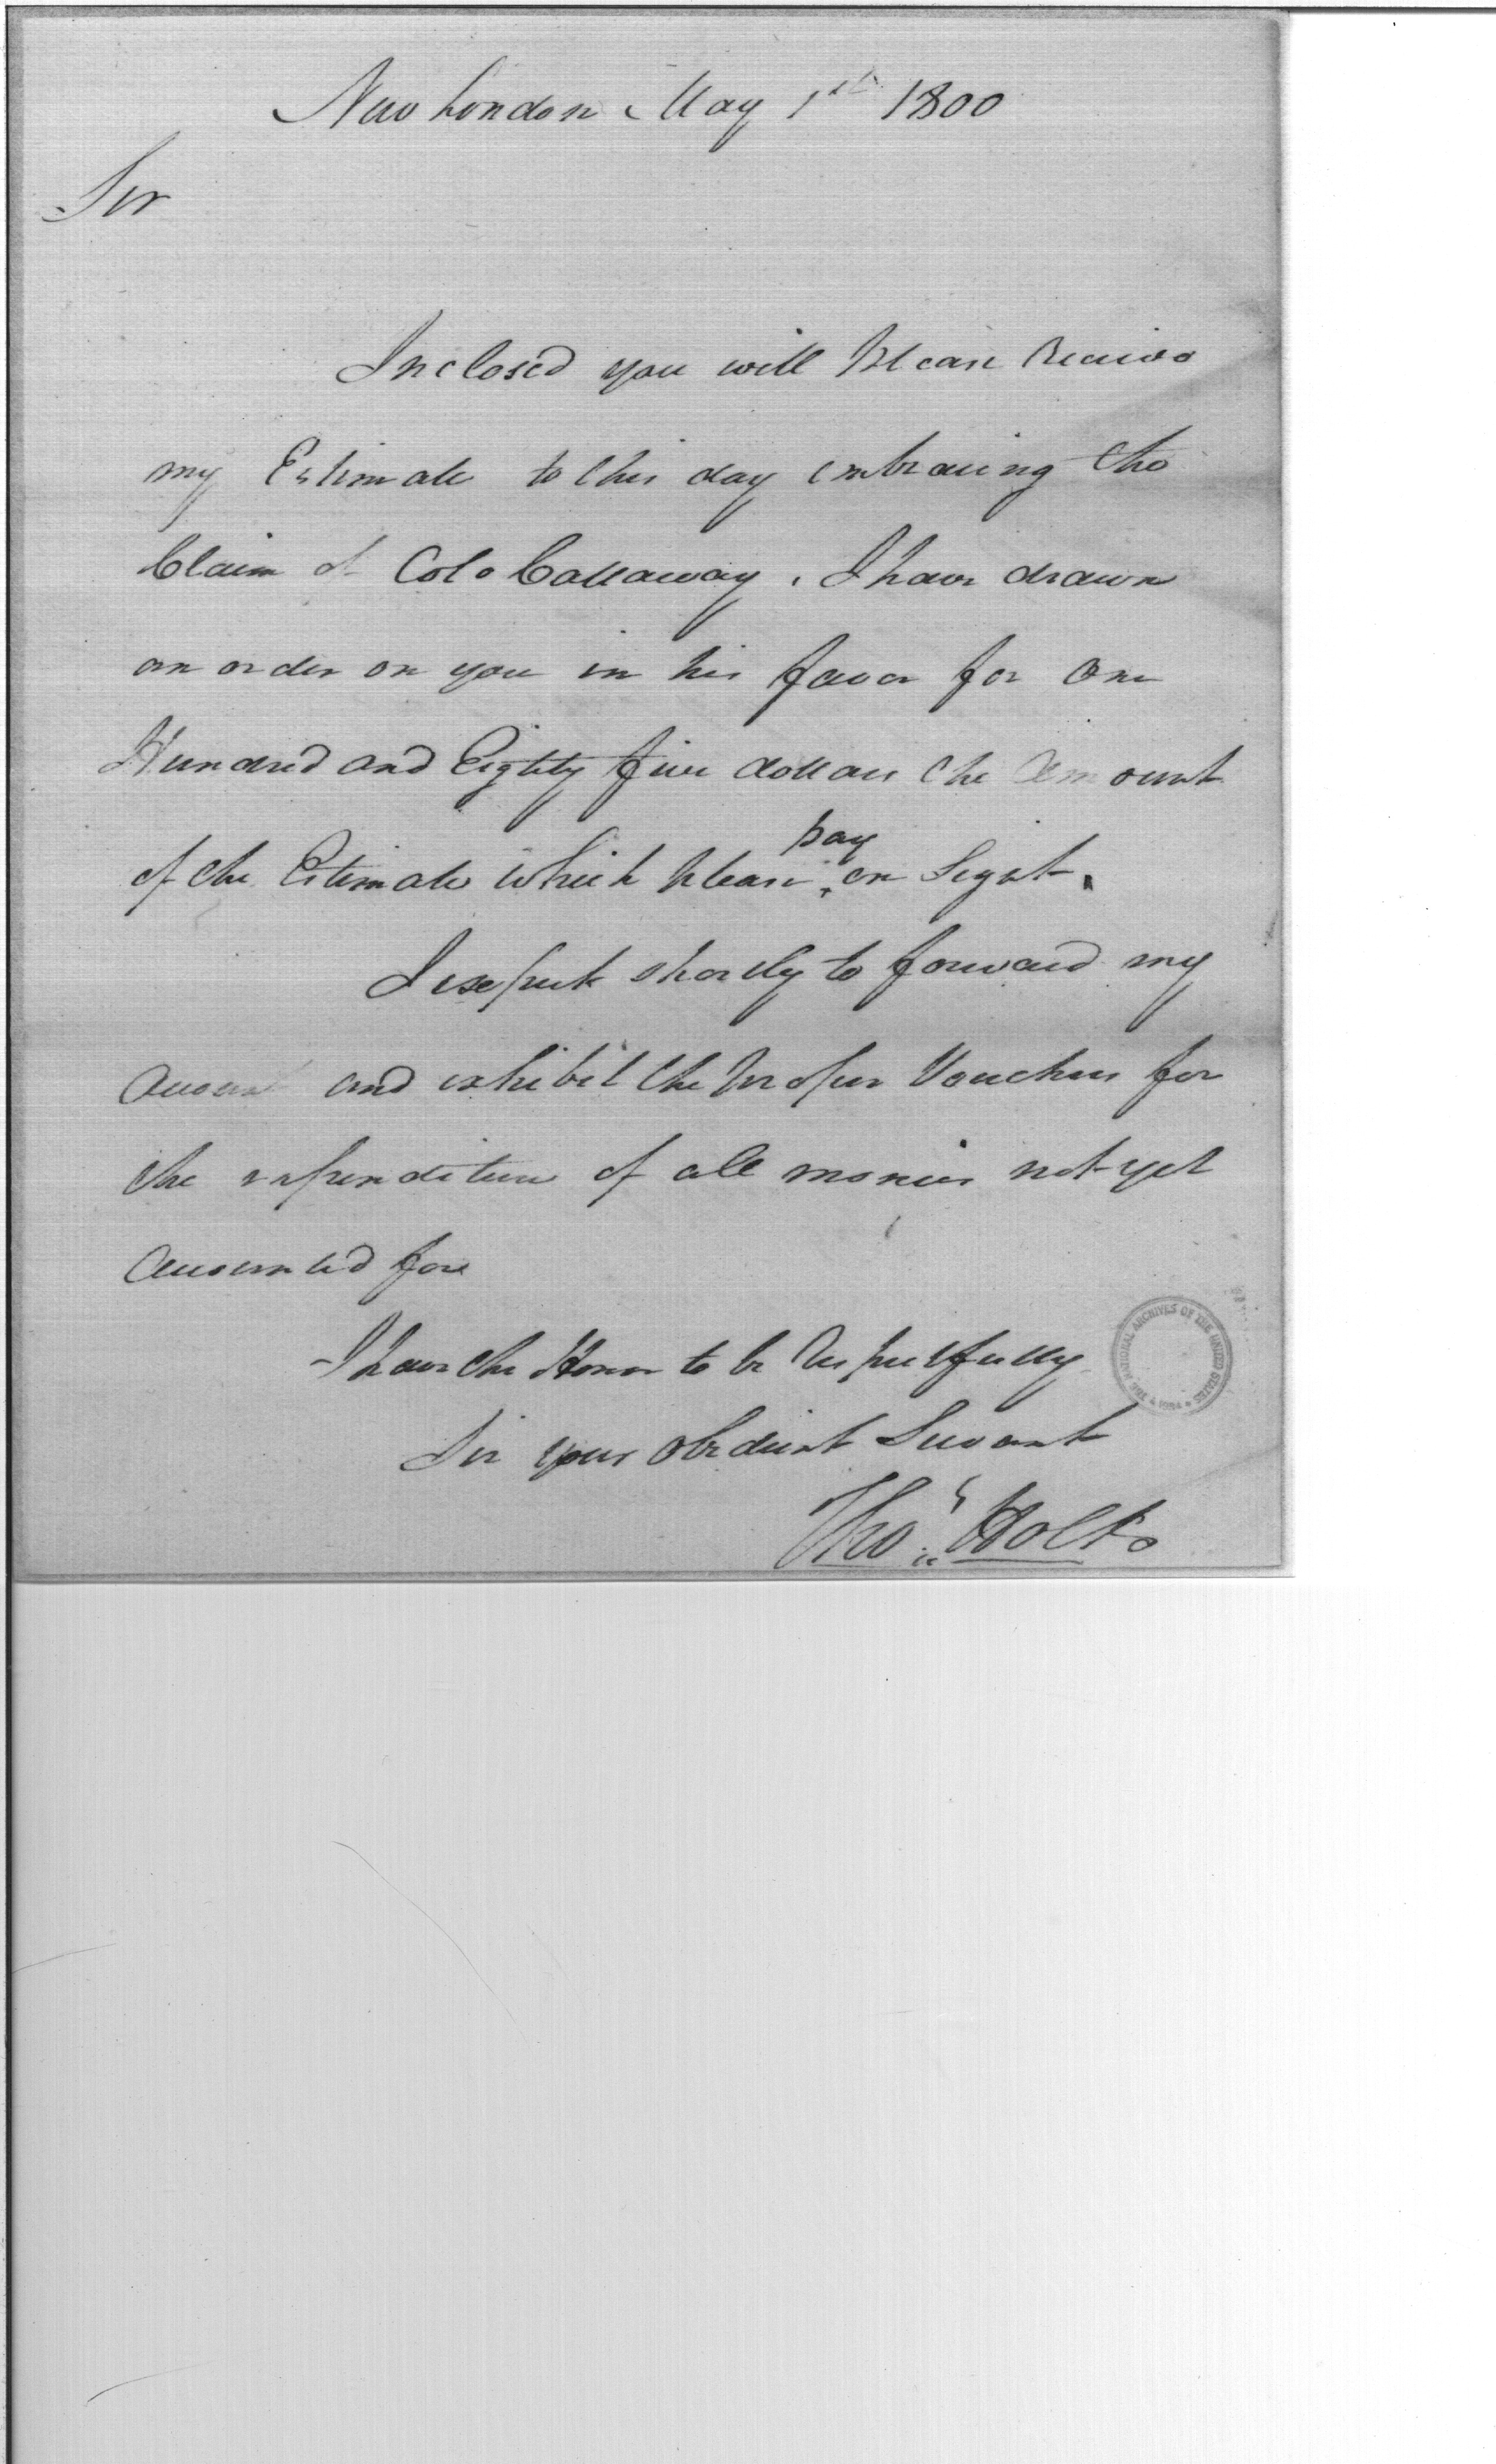 New London May 1st 1800
Sir
Inclosed you will Please Receive
my Estimate to this day embracing the
Claim of Colo Callaway. I have drawn
an order on you in his favor for One
Hundred and Eighty five dollars the Amount
of the Estimate which please pay on Sight.
I expect shortly to forward my
Account and exhibit the proper Vouchers for
the expenditure of all monies not yet
Accounted fore
I have the Honor to be Respectfully
Sir your obedient Servant
Thos Holt
THE NATIONAL ARCHIVES OF THE UNITED STATES